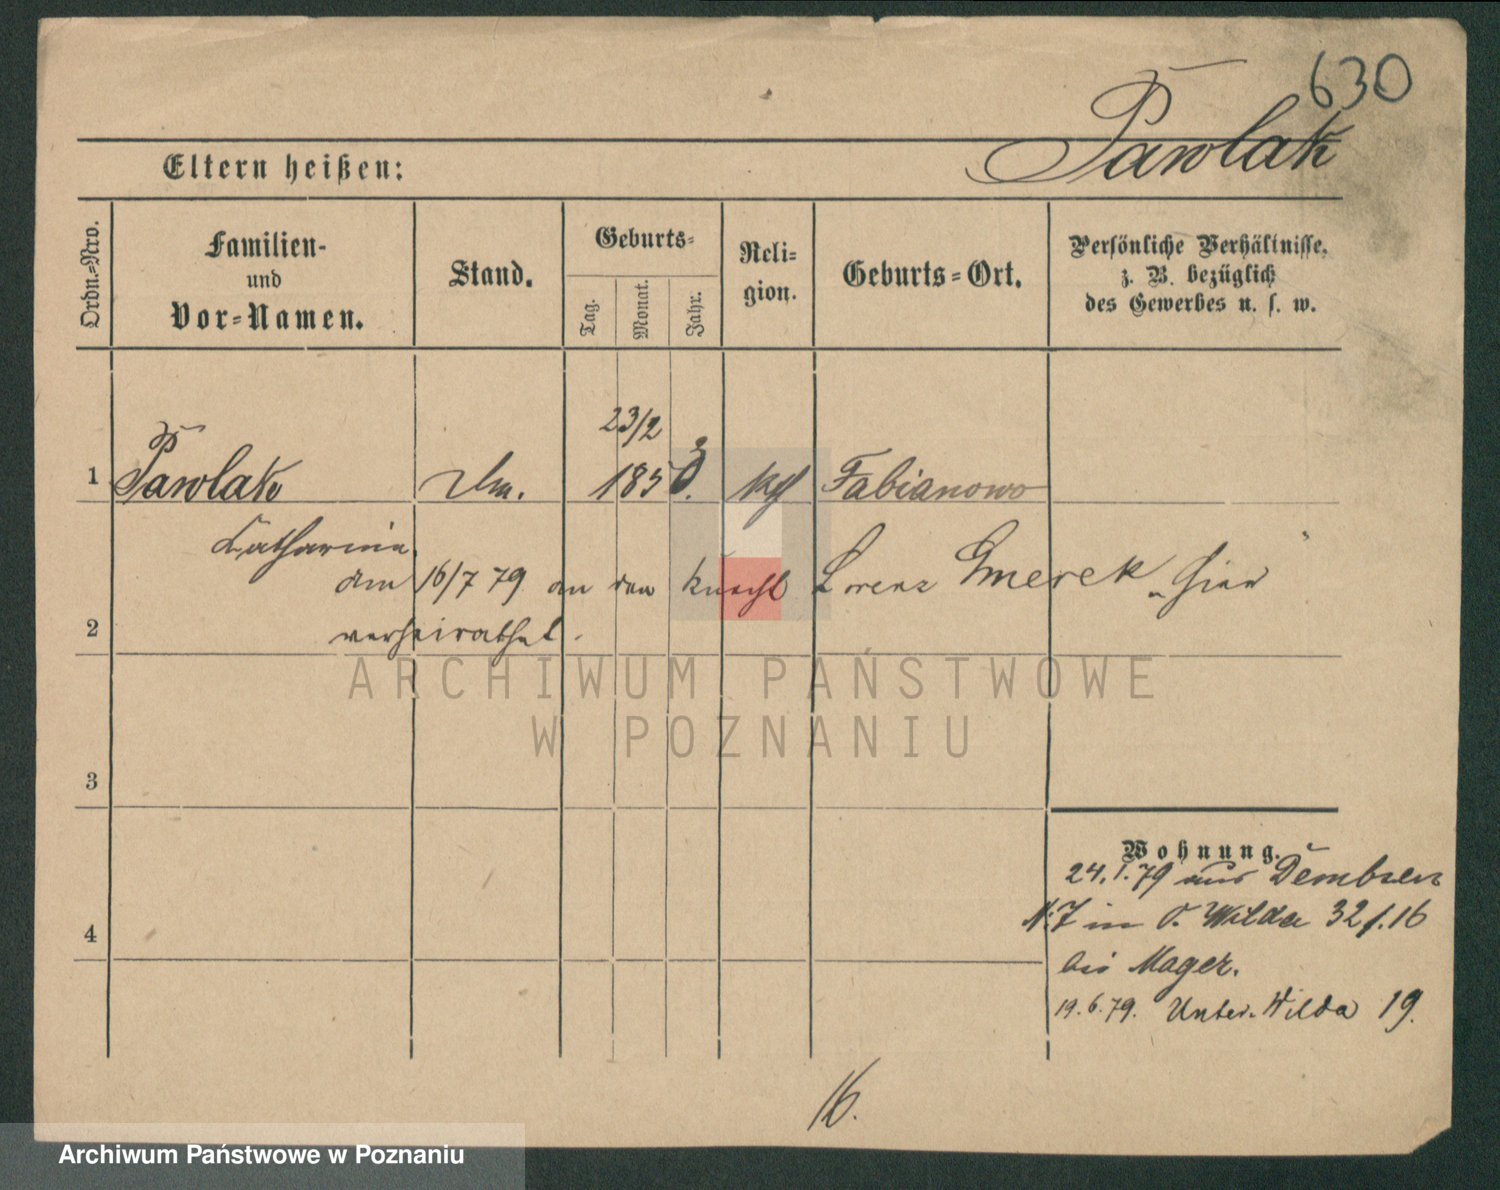 630
Pawlak
Eltern heißen:
Ordn.=Nro.
Familien-
und
Vor=Namen.
Stand.
Geburts=
Tag.
Monat.
Jahr.
Reli=
gion.
Geburts=Ort.
Persönliche Verhältnisse,
z. B. bezüglich
des Gewerbes u. s. w.
23/2
3
1 Pawlak 1850. kth Fabianowo
Catharina
am 16/7 79 an den Knecht Lorenz Smerek hier
2 verheirathet.
ARCHIWUM PAŃSTWOWE
W POZNANIU
3
Wohnung.
24.1.79 aus Dembsen
N. 7 in O. Wilda 32 f. 16
4
bei Mager.
19.6.79. Unter-Wilda 19.
16.
Archiwum Państwowe w Poznaniu